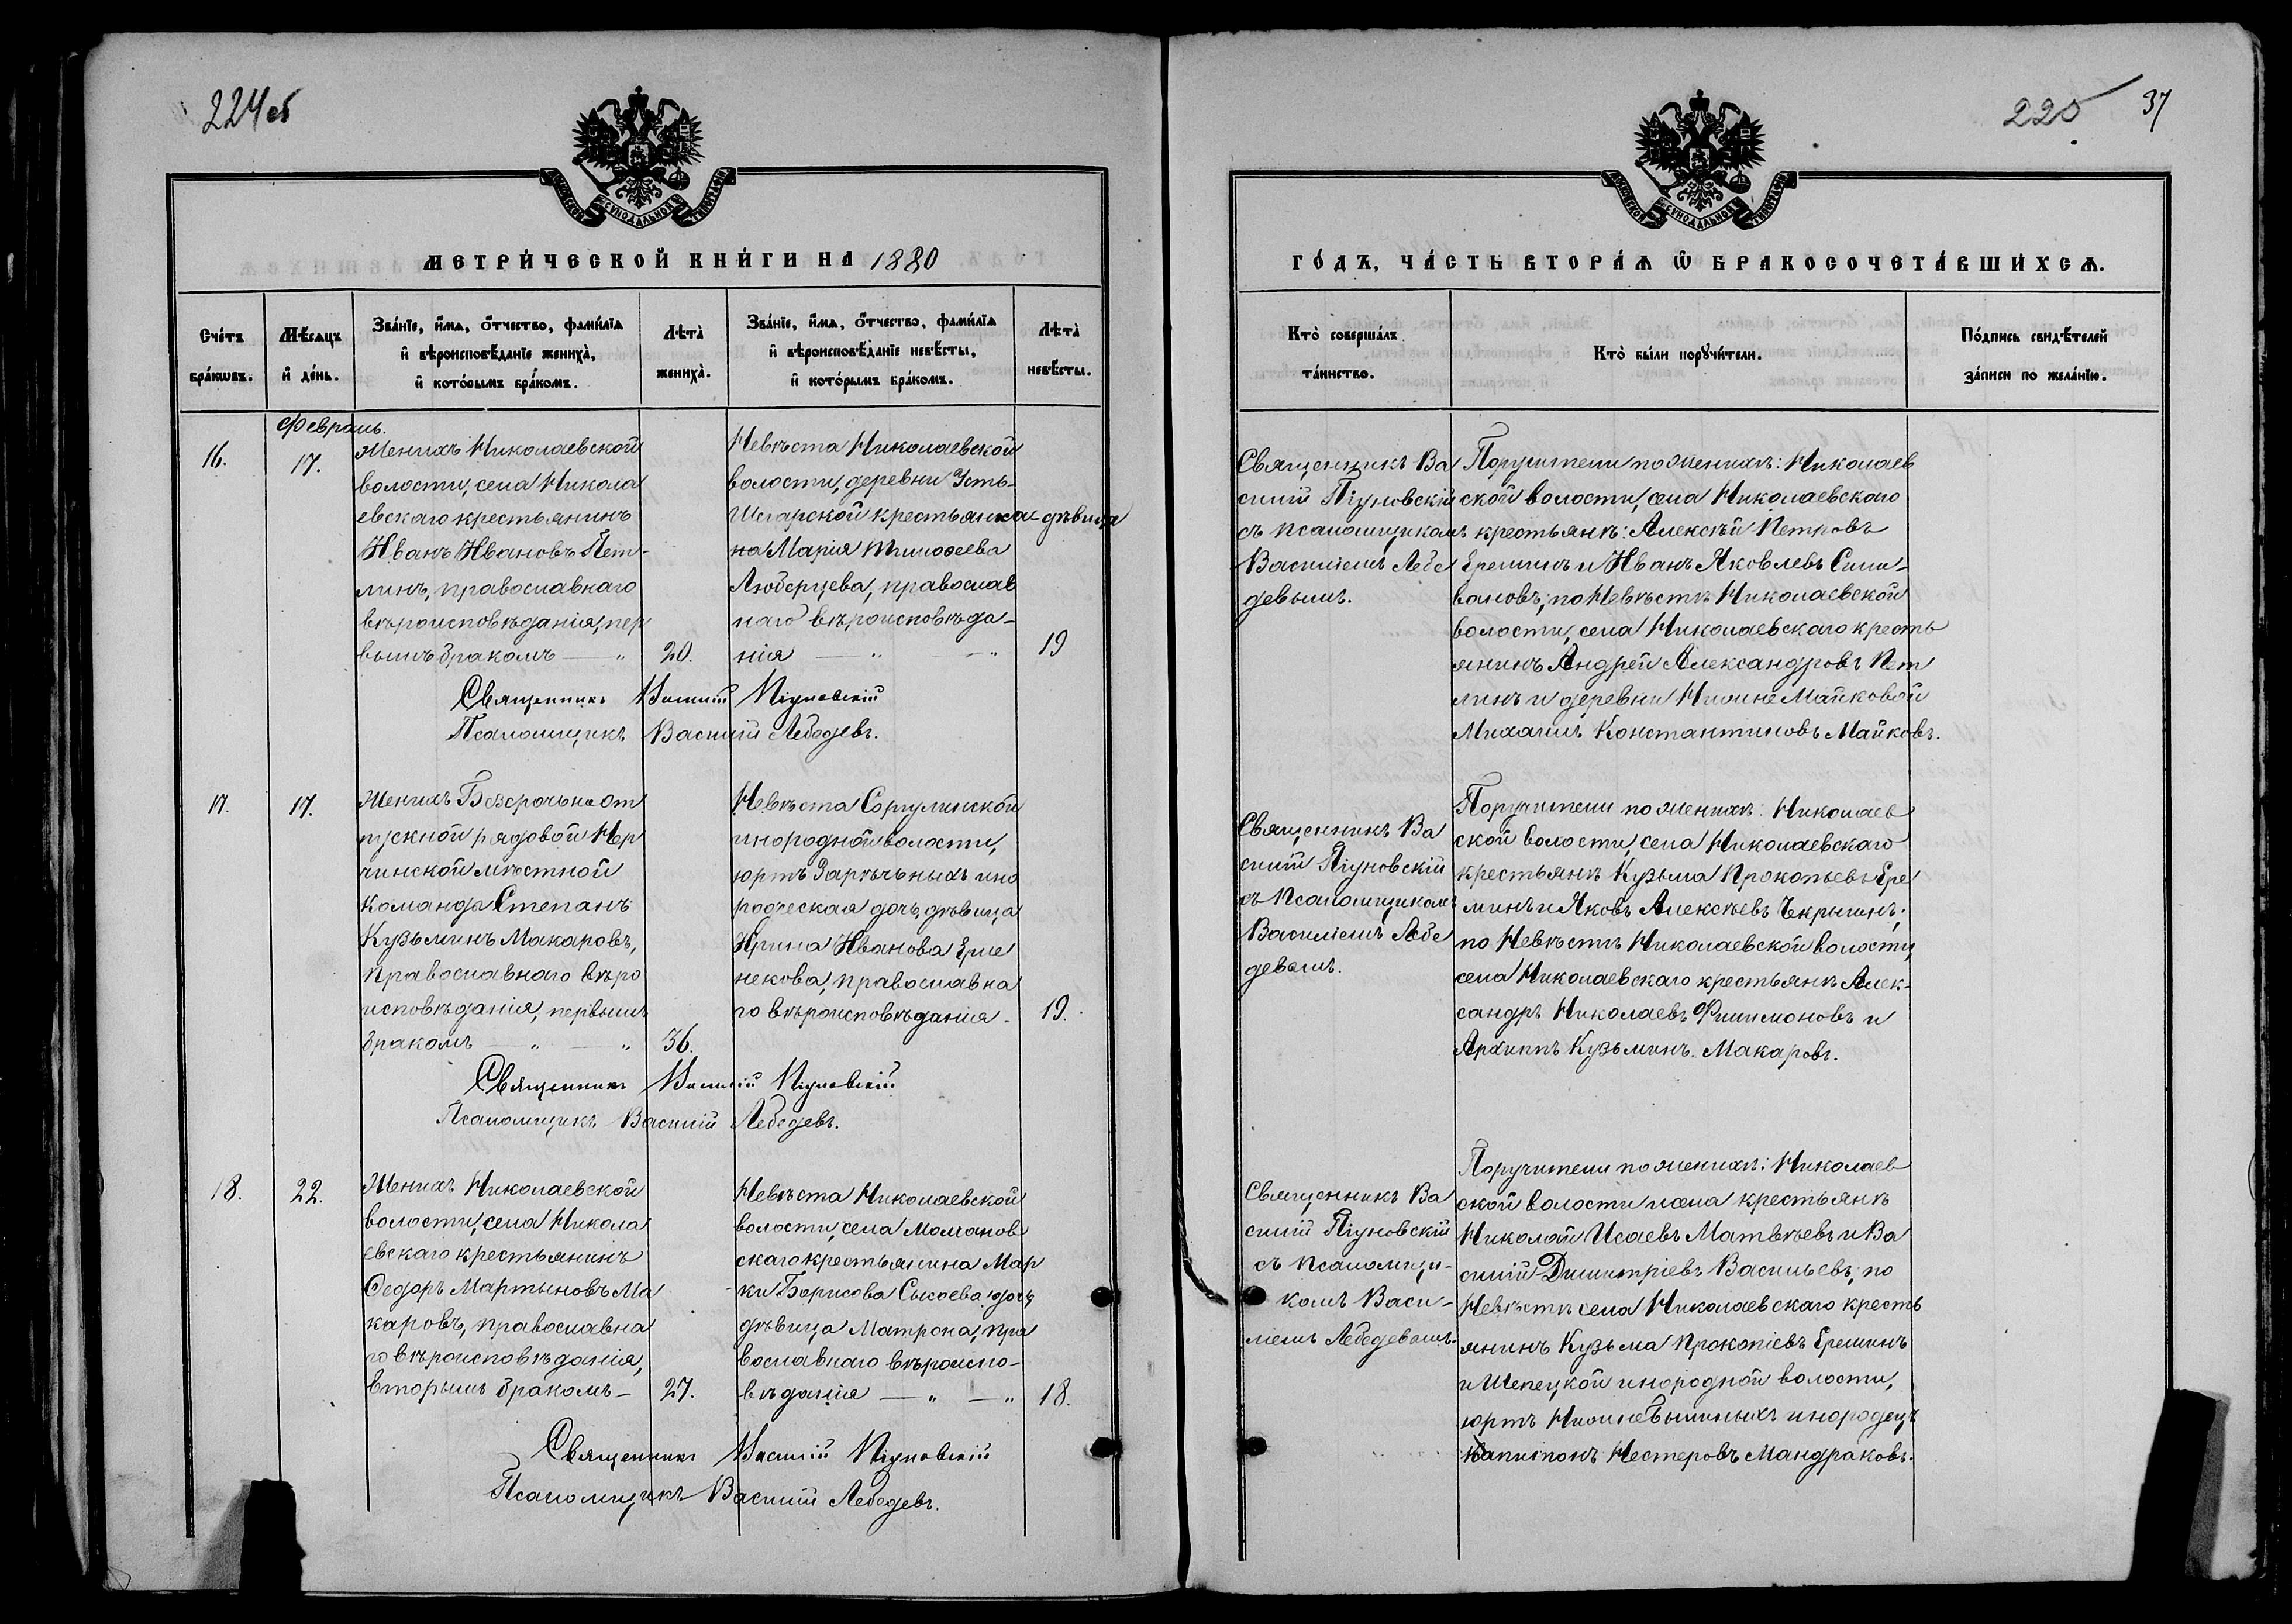 224об
МЕТРИ́ЧЕСКОЙ КНИ́ГИ НА 1880
Сче́тъ бра́кωвъ.
Мѣ́сѧцъ и҆ де́нь.
Зва́нїе, и҆́мѧ, ѻ҆́тчество, фами́лїѧ
и҆ вѣроисповѣ́данїе жениха̀,
и҆ кото́рымъ бра́комъ.
Лѣта̀ жениха̀.
Зва́нїе, и҆́мѧ, ѻ҆́тчество, фами́лїѧ
и҆ вѣроисповѣ́данїе невѣ́сты,
и҆ кото́рымъ бра́комъ.
Лѣта̀ невѣ́сты.
Февраль.
16.
17.
Женихъ Николаевской
волости, села Никола
евскаго крестьянинъ
Иванъ Ивановъ Пет-
линъ, православнаго
вѣроисповѣданія, пер
вымъ бракомъ — „
20.
Невѣста Николаевской
волости, деревни Усть-
крестьянка-дѣвица
на Марія Тимоѳеева
Люберцева, православ
наго вѣроисповѣда-
нія — „ — „
19
Священникъ Василій Піуновскій
Псаломщикъ Василій Лебедевъ.
17.
17.
Женихъ Безсрочьно от
пускной рядовой Нер
чинской мѣстной
команды Степанъ
Кузьминъ Макаровъ,
православнаго вѣро
исповѣданія, первымъ
бракомъ — „ — „
36.
Невѣста Соргулинской
инородной волости,
юртъ Зарѣчьныхъ ино
родческая дочь, дѣвица
Ирина Иванова
некова, православна
го вѣроисповѣданія -
19.
Священникъ Василій Піуновскій
Псаломщикъ Василій Лебедевъ.
18.
22.
Женихъ Николаевской
волости, села Никола
евскаго крестьянинъ
Ѳедоръ Мартыновъ Ма
каровъ, православна
го вѣроисповѣданія,
вторымъ бракомъ -
27.
Невѣста Николаевской
волости, села Моманов
скаго крестьянина Мар
ки Борисова Сысоева дочь
дѣвица Матрона, пра
вославнаго вѣроиспо-
вѣданія — „ — „
18.
Священникъ Василій Піуновскій
Псаломщикъ Василій Лебедевъ.
225
37
ГО́ДЪ, ЧА́СТЬ ВТОРА́Ѧ Ѽ БРАКОСОЧЕТА́ВШИХСѦ.
Кто̀ соверша́лъ
та́инство.
Кто̀ бы́ли порꙋчи́тели.
По́дпись свидѣ́телей
за́писи по жела́нїю.
Священникъ Ва
силій Піуновскій
съ псаломщикомъ
Василіемъ Лебе
девымъ.
Поручители по женихѣ: Николаев
ской волости, села Николаевскаго
крестьяне: Алексѣй Петровъ
Ереминъ и Иванъ Яковлевъ Сели-
вановъ; по Невѣстѣ Николаевской
волости, села Николаевскаго кресть
янинъ Андрей Александровъ Пет
линъ и деревни Нижне Майковой
Михаилъ Константиновъ Майковъ.
Священникъ Ва
силій Піуновскій
съ Псаломщикомъ
Василіемъ Лебе
девымъ.
Поручители по женихѣ: Николаев
ской волости, села Николаевскаго
крестьяне Кузьма Прокопьевъ Ере
минъ и Яковъ Алексѣевъ Чкрыгинъ;
по Невѣстѣ Николаевской волости,
села Николаевскаго крестьяне Алек-
сандръ Николаевъ Филимоновъ и
Архиппъ Кузьминъ Макаровъ.
Священникъ Ва
силій Піуновскій
съ псаломщи-
комъ Васи-
ліемъ Лебедевымъ.
Поручители по женихѣ: Николаев
ской волости и села крестьяне
Николай Исаевъ Матвѣевъ и Ва
силій Димитріевъ Васильевъ; по
Невѣстѣ села Николаевскаго кресть
янинъ Кузьма Прокопіевъ Ереминъ
и Шепецкой инородной волости,
юртъ инородецъ
Капитонъ Нестеровъ Мандраковъ.